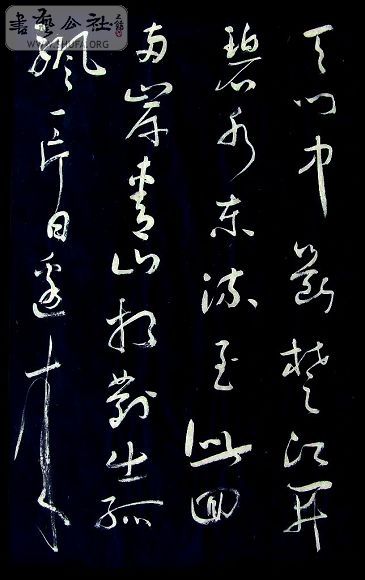 天门中斷楚江開
碧水東流至此回
兩岸青山相對出孤
帆一片日邊来
書藝公社
WWW.SHUFA.ORG